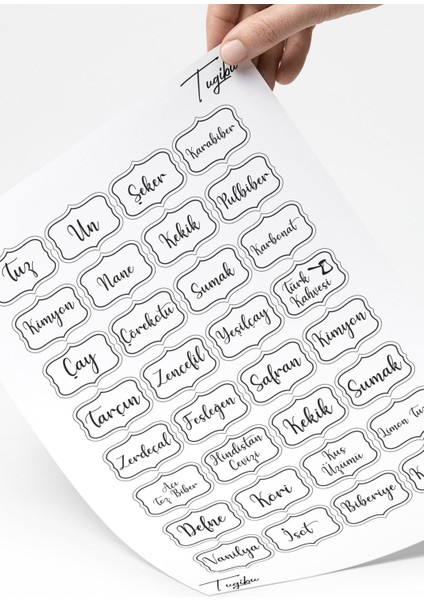 Tugibu
Tuz
Un
Şeker
Karabiber
Kimyon
Nane
Kekik
Pulbiber
Çay
Çörekotu
Sumak
Karbonat
Tarçın
Zencefil
Yeşilçay
Türk
Kahvesi
Zerdeçal
Fesleğen
Safran
Kimyon
Acı
Toz Biber
Hindistan
Cevizi
Kekik
Sumak
Defne
Köri
Kuş
Üzümü
Limon Tu
Vanilya
İsot
Biberiye
K
Tugibu